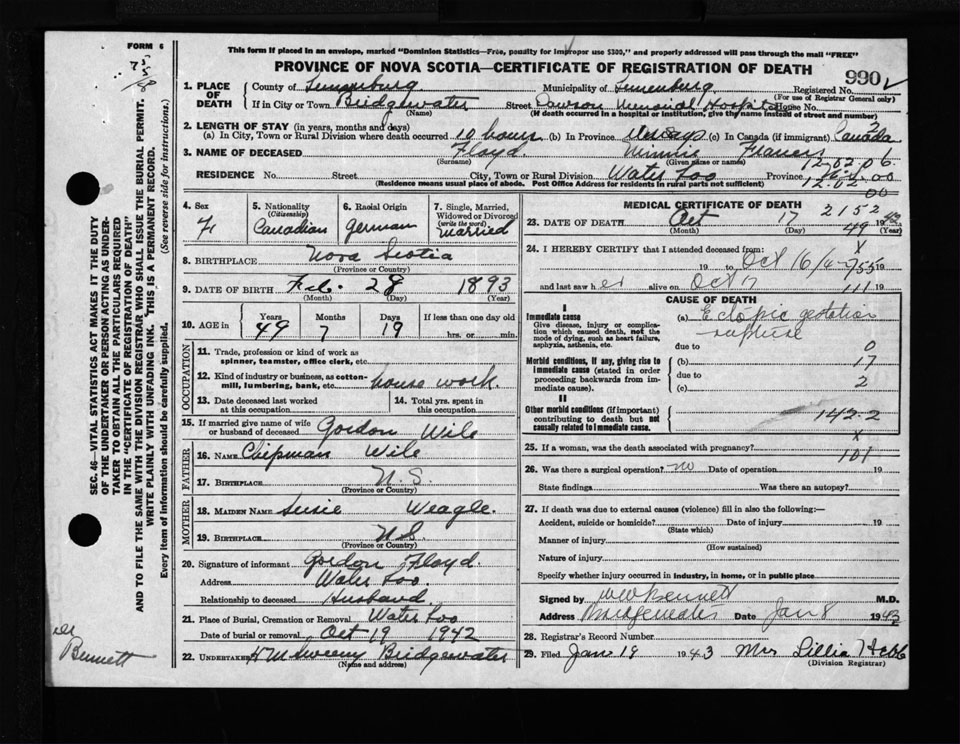 FORM 6
75
5/8
This form if placed in an envelope, marked "Dominion Statistics—Free, penalty for improper use $300," and properly addressed will pass through the mail "FREE"
PROVINCE OF NOVA SCOTIA—CERTIFICATE OF REGISTRATION OF DEATH
990
1. PLACE OF DEATH
County of Lunenburg Municipality of Lunenburg Registered No.
(For use of Registrar General only)
If in City or Town Bridgewater Street Dawson Memorial Hospital House No.
(Name) (If death occurred in a hospital or institution, give its name instead of street and number)
2. LENGTH OF STAY (in years, months and days)
(a) In City, Town or Rural Division where death occurred 10 hours (b) In Province Always (c) In Canada (if immigrant) Canada
3. NAME OF DECEASED Floyd Minnie Frances
(Surname) (Given name or names)
12.02.06
RESIDENCE No. Street City, Town or Rural Division Water Loo Province
12.02.00
00
(Residence means usual place of abode. Post Office Address for residents in rural parts not sufficient)
4. Sex F
5. Nationality (Citizenship) Canadian
6. Racial Origin German
7. Single, Married, Widowed or Divorced (write the word) Married
8. BIRTHPLACE Nova Scotia
(Province or Country)
9. DATE OF BIRTH Feb. 28 1893
(Month) (Day) (Year)
10. AGE in Years Months Days If less than one day old
49 7 19 hrs. or min.
OCCUPATION
11. Trade, profession or kind of work as spinner, teamster, office clerk, etc.
12. Kind of industry or business, as cotton-mill, lumbering, bank, etc. house work.
13. Date deceased last worked at this occupation
14. Total yrs. spent in this occupation
15. If married give name of wife or husband of deceased Gordon Wile
FATHER
16. NAME Chipman Wile
17. BIRTHPLACE N.S.
(Province or Country)
MOTHER
18. MAIDEN NAME Susie Weagle.
19. BIRTHPLACE N.S.
(Province or Country)
20. Signature of informant Gordon Floyd.
Address Water Loo.
Relationship to deceased Husband
21. Place of Burial, Cremation or Removal Water Loo
Date of burial or removal Oct 19 1942
22. UNDERTAKER Sweeny Bridgewater
(Name and address)
MEDICAL CERTIFICATE OF DEATH
2152
23. DATE OF DEATH Oct 17 1942
49
(Month) (Day) (Year)
24. I HEREBY CERTIFY that I attended deceased from:
x
19 to Oct 16/4 19
755
and last saw her alive on Oct 17 19
111
CAUSE OF DEATH
I
Immediate cause
Give disease, injury or complication which caused death, not the mode of dying, such as heart failure, asphyxia, asthenia, etc.
(a) Ectopic gestation
rupture
due to 0
Morbid conditions, if any, giving rise to immediate cause (stated in order proceeding backwards from immediate cause).
(b) 17
due to 2
(c)
II
Other morbid conditions (if important) contributing to death but not causally related to immediate cause.
142.2
x
25. If a woman, was the death associated with pregnancy?
101
26. Was there a surgical operation? no Date of operation 19
State findings Was there an autopsy?
27. If death was due to external causes (violence) fill in also the following:—
Accident, suicide or homicide? Date of injury 19
(State which)
Manner of injury
(How sustained)
Nature of injury
Specify whether injury occurred in industry, in home, or in public place
Signed by WW Bennett M.D.
Address Bridgewater Date Jan 8 1943
28. Registrar's Record Number
29. Filed Jan 19 1943 Mrs Lillia Hebb
(Division Registrar)
SEC. 46—VITAL STATISTICS ACT MAKES IT THE DUTY
OF THE UNDERTAKER OR PERSON ACTING AS UNDERTAKER TO OBTAIN ALL THE PARTICULARS REQUIRED
IN THE "CERTIFICATE OF REGISTRATION OF DEATH"
AND TO FILE THE SAME WITH THE DIVISION REGISTRAR WHO SHALL ISSUE THE BURIAL PERMIT.
WRITE PLAINLY WITH UNFADING INK. THIS IS A PERMANENT RECORD.
Every item of information should be carefully supplied. (See reverse side for instructions.)
Bennett